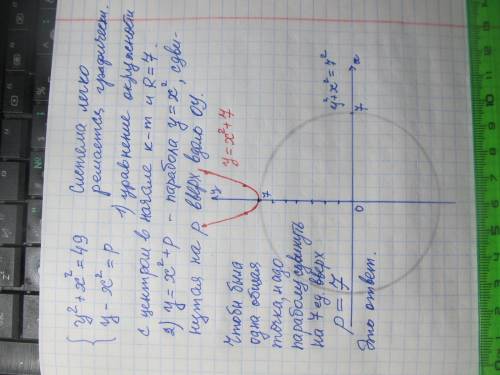 { y² + x² = 49
y - x² = p
Система легко
решается графически.
1) уравнение окружности
с центром в начале к-т и R = 7.
2) y = x² + p – парабола y = x², сдви-
нутая на p вверх вдоль OY.
Чтобы была
одна общая
точка, надо
параболу сдвинуть
на 7 ед вверх
p = 7
Это ответ.
y
y = x² + 7
7
0
7
x
y² + x² = 7²